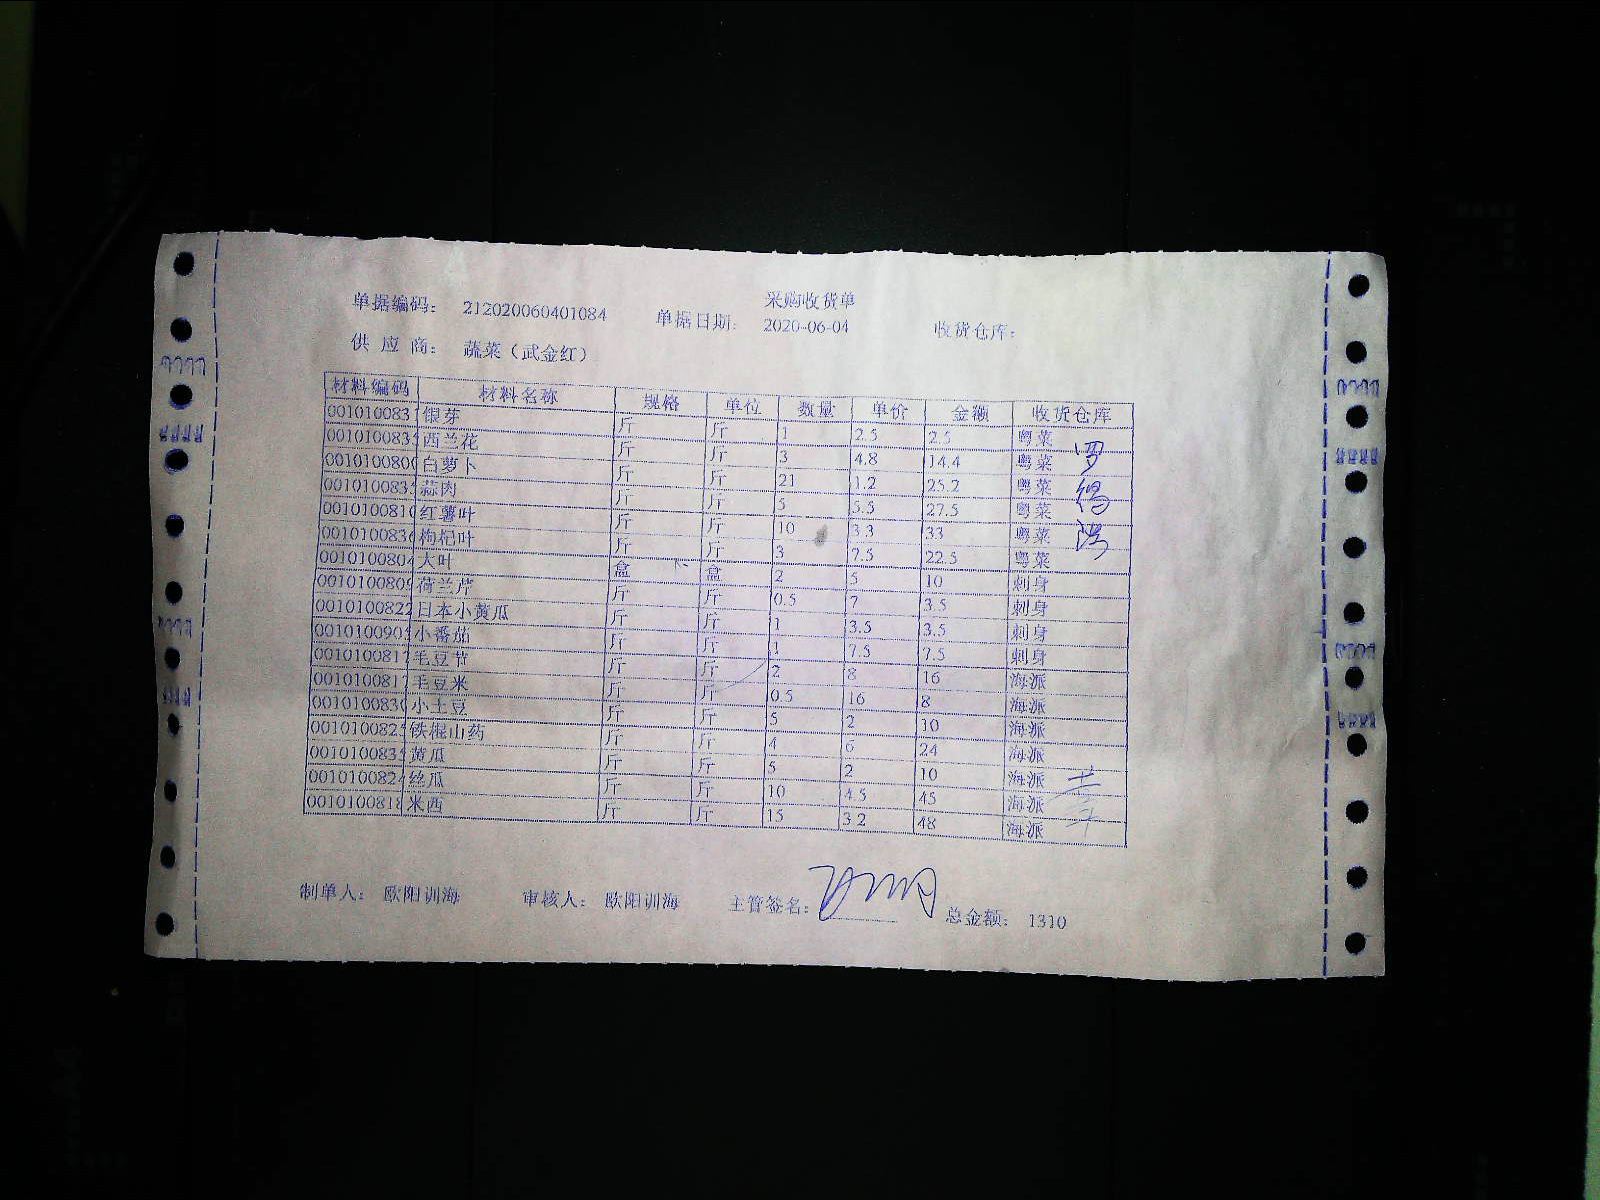 采购收货单
单据编码： 212020060401084 单据日期： 2020-06-04 收货仓库：
供 应 商： 蔬菜（武金红）
材料编码 材料名称 规格 单位 数量 单价 金额 收货仓库
001010083 银芽 斤 斤 1 2.5 2.5 粤菜
001010083 西兰花 斤 斤 3 4.8 14.4 粤菜
001010080 白萝卜 斤 斤 21 1.2 25.2 粤菜
001010083 蒜肉 斤 斤 5 5.5 27.5 粤菜
001010081 红薯叶 斤 斤 10 3.3 33 粤菜
001010083 枸杞叶 斤 斤 3 7.5 22.5 粤菜
001010080 大叶 盒 盒 2 5 10 刺身
001010080 荷兰芹 斤 斤 0.5 7 3.5 刺身
0010100822 日本小黄瓜 斤 斤 1 3.5 3.5 刺身
001010090 小番茄 斤 斤 1 7.5 7.5 刺身
001010081 毛豆节 斤 斤 2 8 16 海派
001010081 毛豆米 斤 斤 0.5 16 8 海派
001010083 小土豆 斤 斤 5 2 10 海派
001010082 铁棍山药 斤 斤 4 6 24 海派
001010083 黄瓜 斤 斤 5 2 10 海派
001010082 丝瓜 斤 斤 10 4.5 45 海派
001010081 米西 斤 斤 15 3.2 48 海派
制单人： 欧阳训海 审核人： 欧阳训海 主管签名： 总金额： 1310